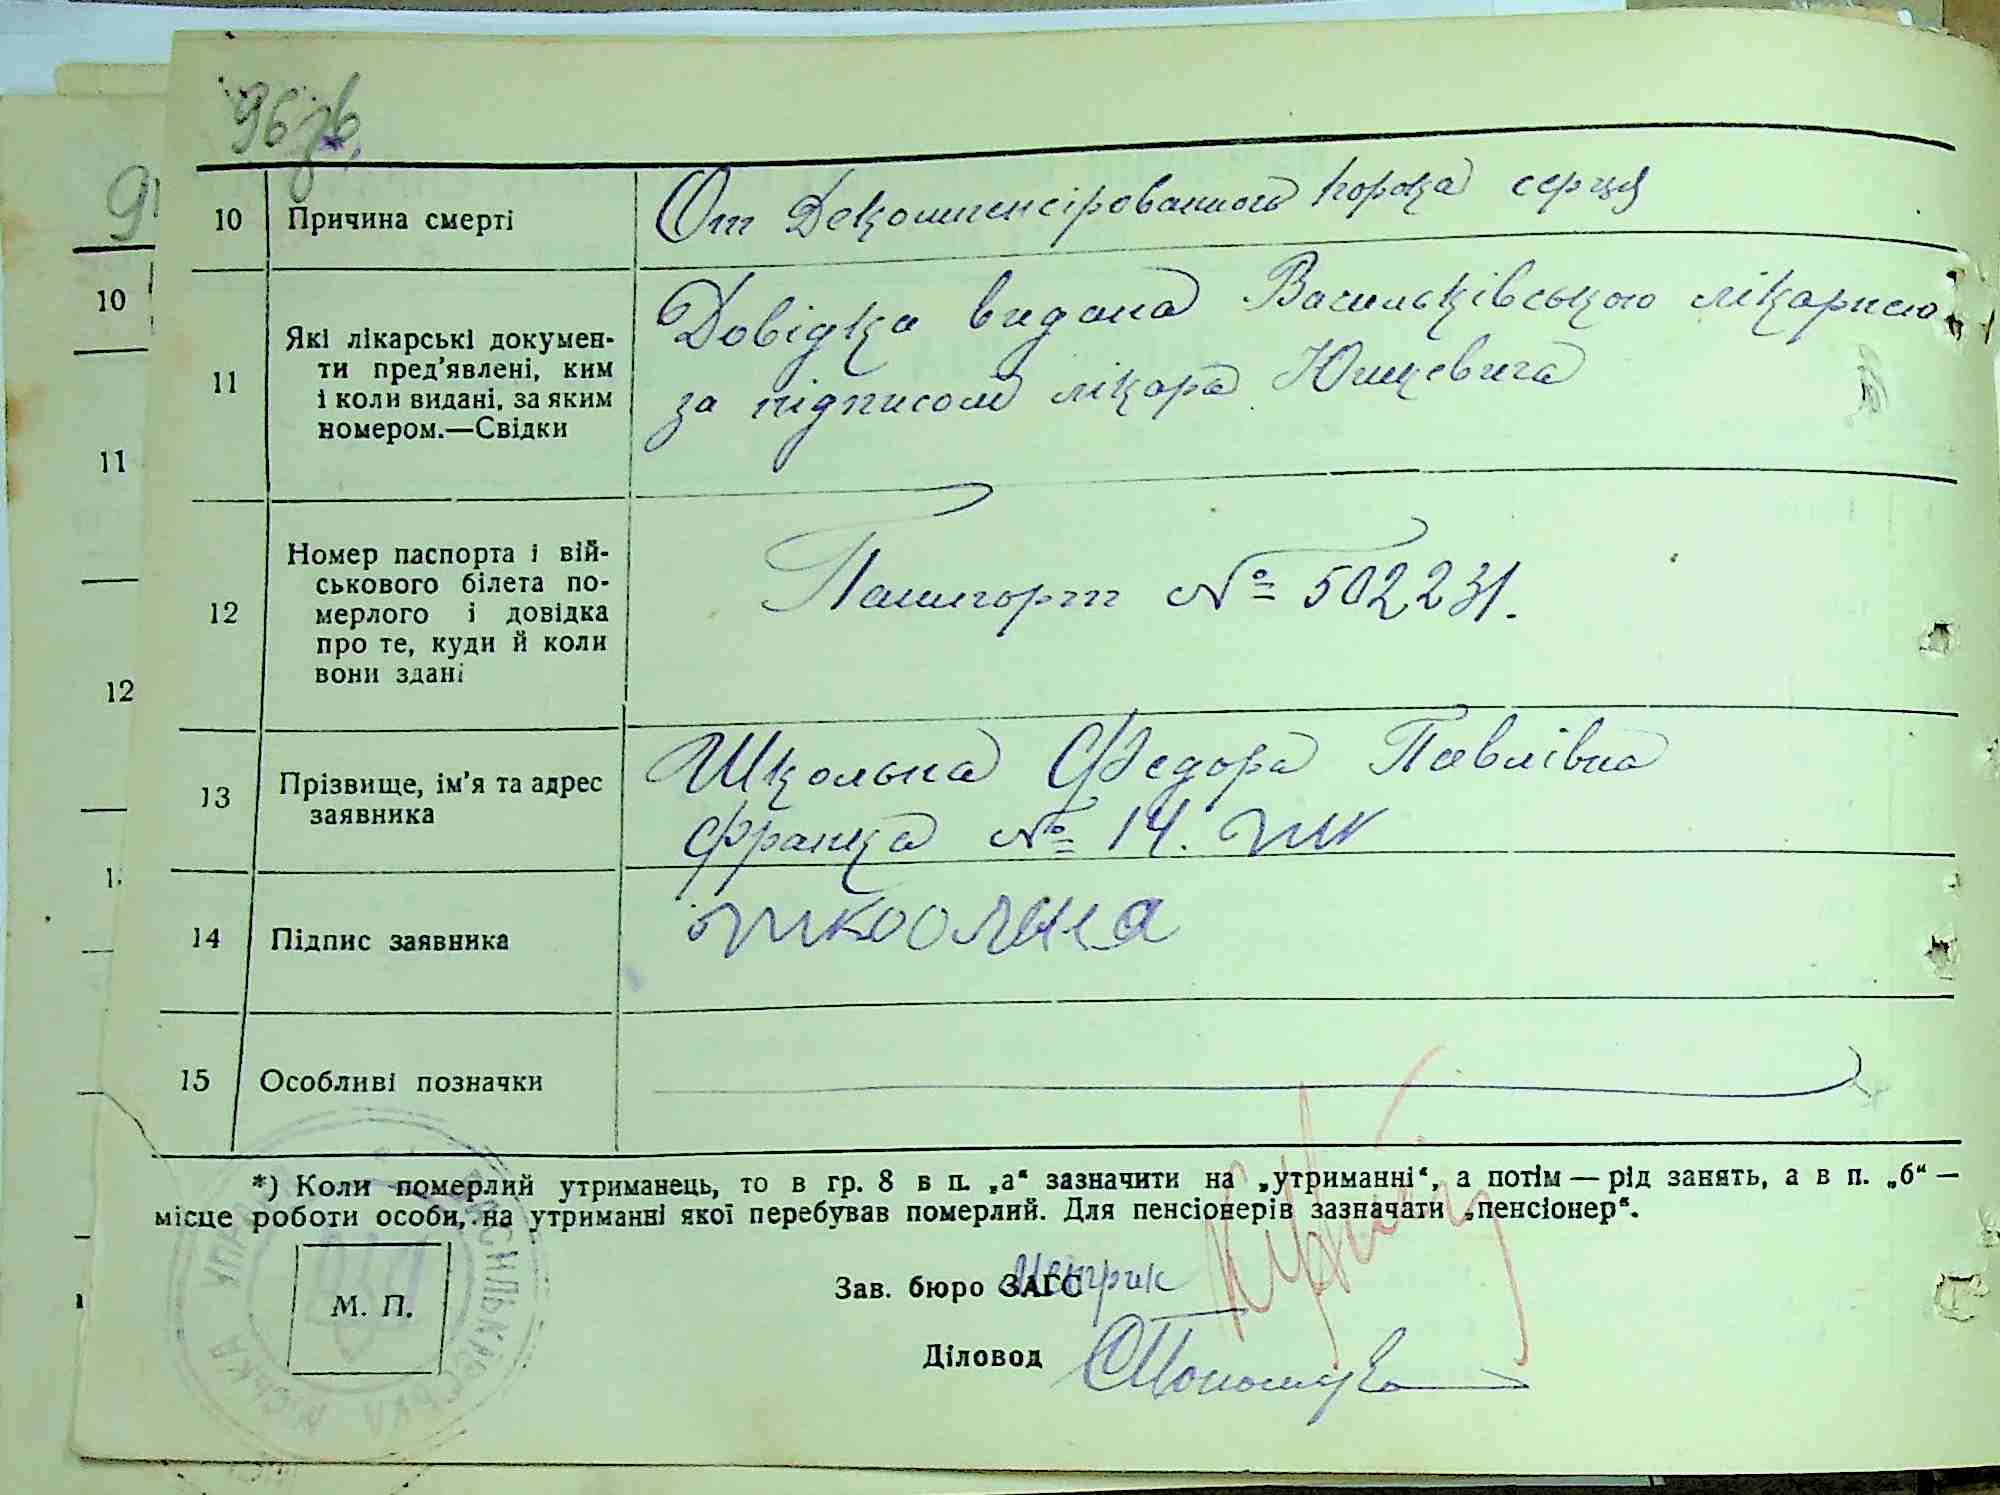 96 зв.
10 Причина смерті От Декомпенсірованного порока серця
11 Які лікарські докумен-
ти пред'явлені, ким
і коли видані, за яким
номером.—Свідки
Довідка видана Васильківською лікарнею
за підписом лікара Юшкевича
12 Номер паспорта і вій-
ськового білета по-
мерлого і довідка
про те, куди й коли
вони здані
Пашпорт № 502231.
13 Прізвище, ім'я та адрес
заявника
Школьна Федора Павлівна
Франка № 14.
14 Підпис заявника
15 Особливі позначки
*) Коли померлий утриманець, то в гр. 8 в п. „а“ зазначити на „утриманні“, а потім — рід занять, а в п. „б“ —
місце роботи особи, на утриманні якої перебував померлий. Для пенсіонерів зазначати „пенсіонер“.
М. П.
Зав. бюро ЗАГС
Діловод
ВАСИЛЬКІВСЬКА МІСЬКА УПРАВА
10
11
12